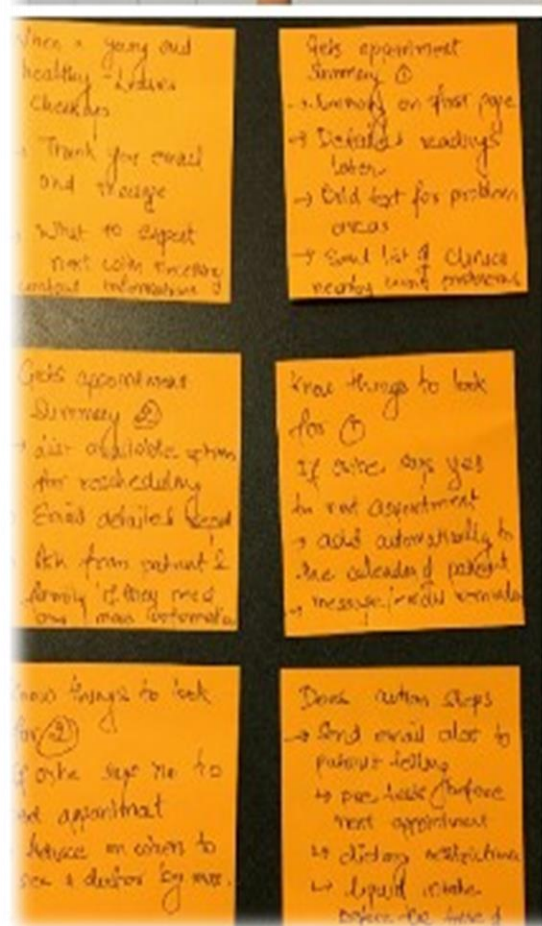 young and
healthy
Checkups
Thank you email
and message
→ What to expect
next with
contact information
Gets appointment
Summary ①
→ Summary on first page
→ Detailed readings
later
→ Bold text for problem
areas
→ Send list of clinics
nearby
Gets appointment
Summary ②
→ List available option
for rescheduling
Email detailed
Ask from patient &
family if they need
any more information
Know things to look
for ①
If says yes
to next appointment
→ add automatically to
the calendar of patient
→ message/
Know things to look
for ②
If says no to
next appointment
Advice on when to
see a doctor by
Does action steps
→ Send email alert to
patient telling
↳ before
next appointment
↳ dietary restrictions
↳ liquid intake
before the